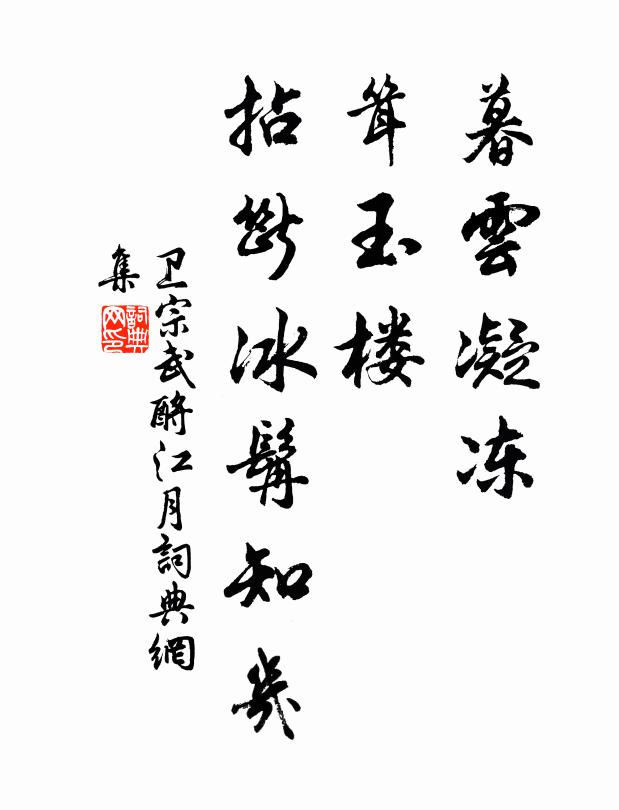 暮雲凝冻
耸玉楼
拈斷冰髯知幾
卫宗武酹江月詞典網
集
詞典
网印